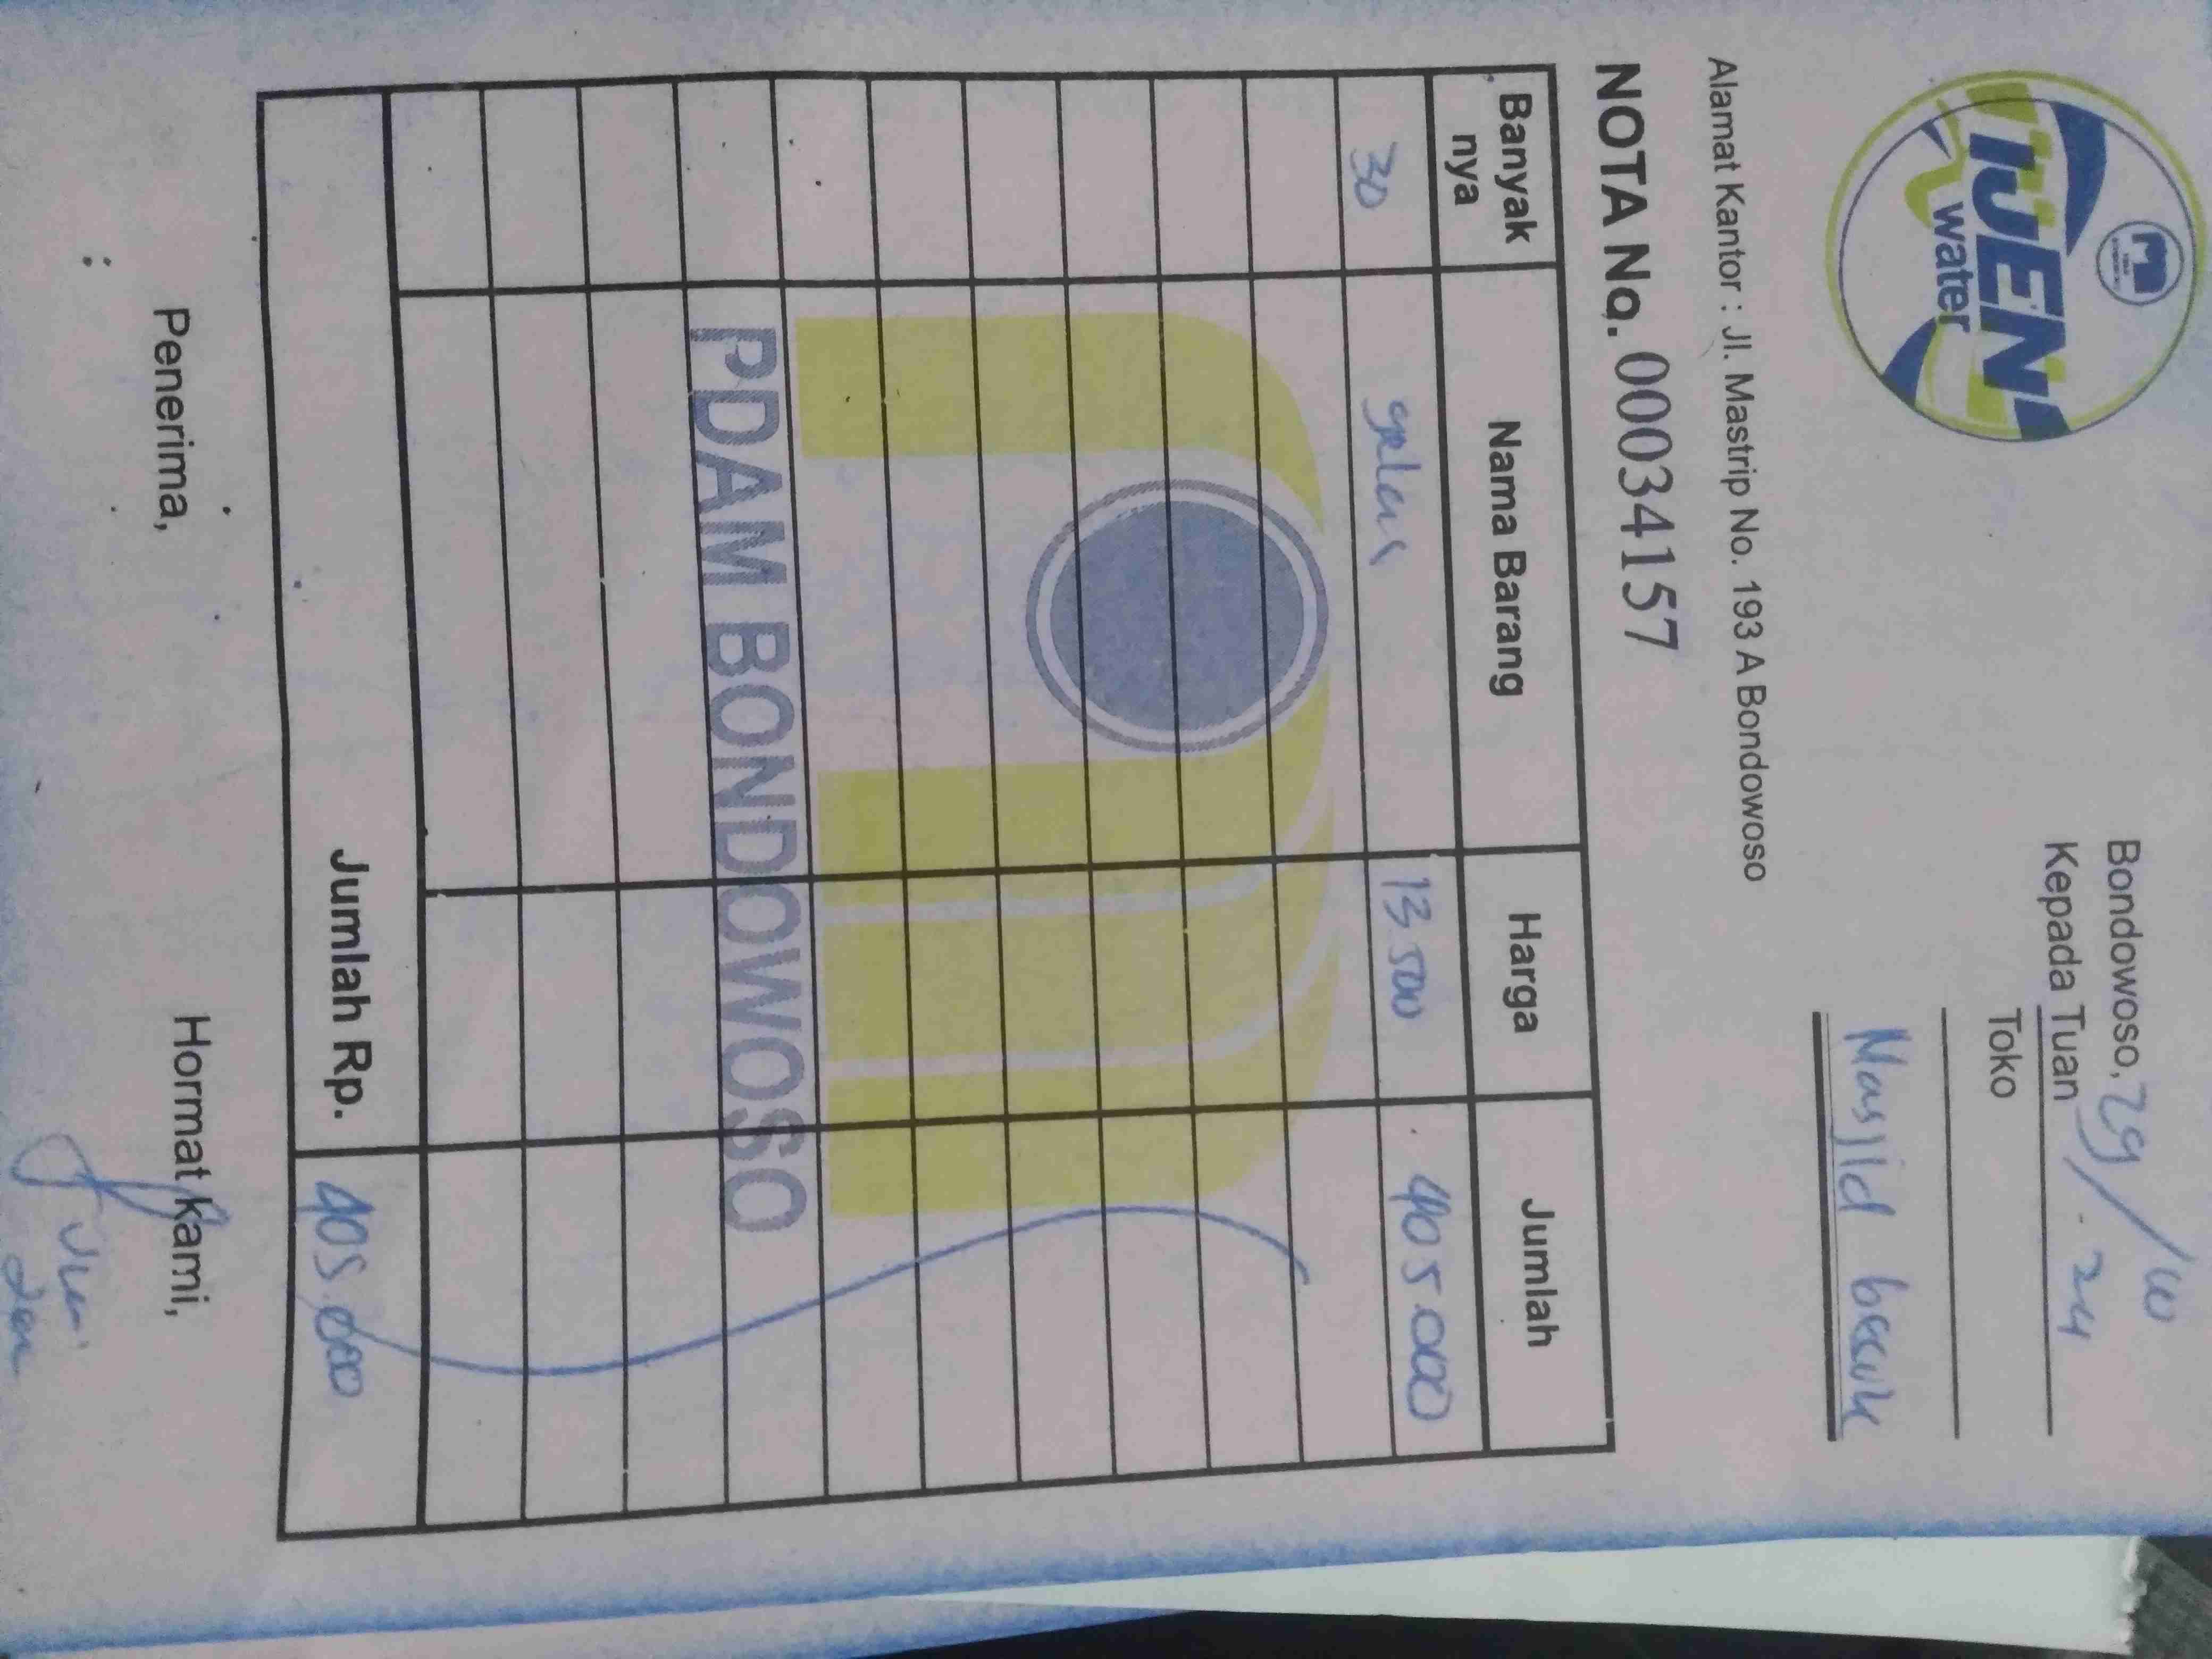 IJEN
water
Bondowoso, 29/10 - 24
Kepada Tuan
Toko
Masjid besar
Alamat Kantor : Jl. Mastrip No. 193 A Bondowoso
NOTA No. 00034157
Banyak nya Nama Barang Harga Jumlah
30 gelas 13 500 405.000
PDAM BONDOWOSO
Jumlah Rp. 405.000
Penerima, Hormat kami,